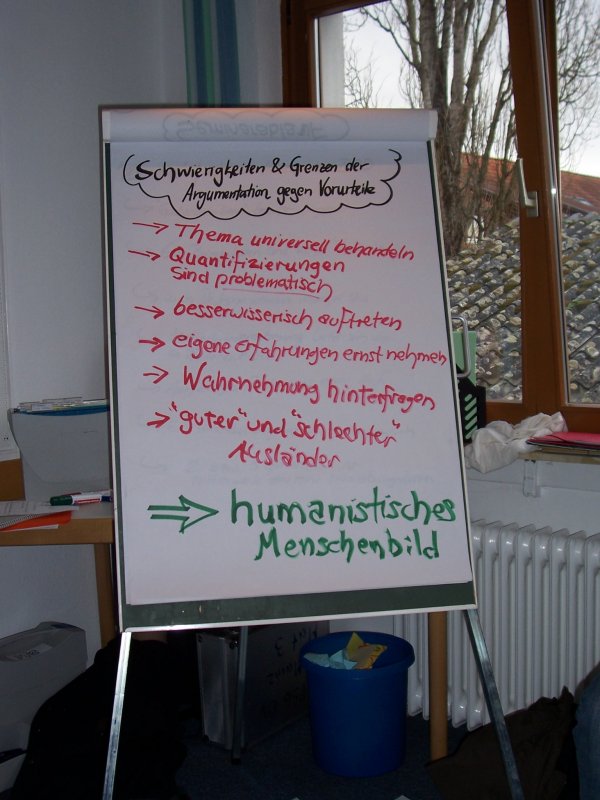 Schwierigkeiten & Grenzen der
Argumentation gegen Vorurteile
→ Thema universell behandeln
→ Quantifizierungen
sind problematisch
→ besserwisserisch auftreten
→ eigene Erfahrungen ernst nehmen
→ Wahrnehmung hinterfragen
→ "guter" und "schlechter"
Ausländer
⇒ humanistisches
Menschenbild